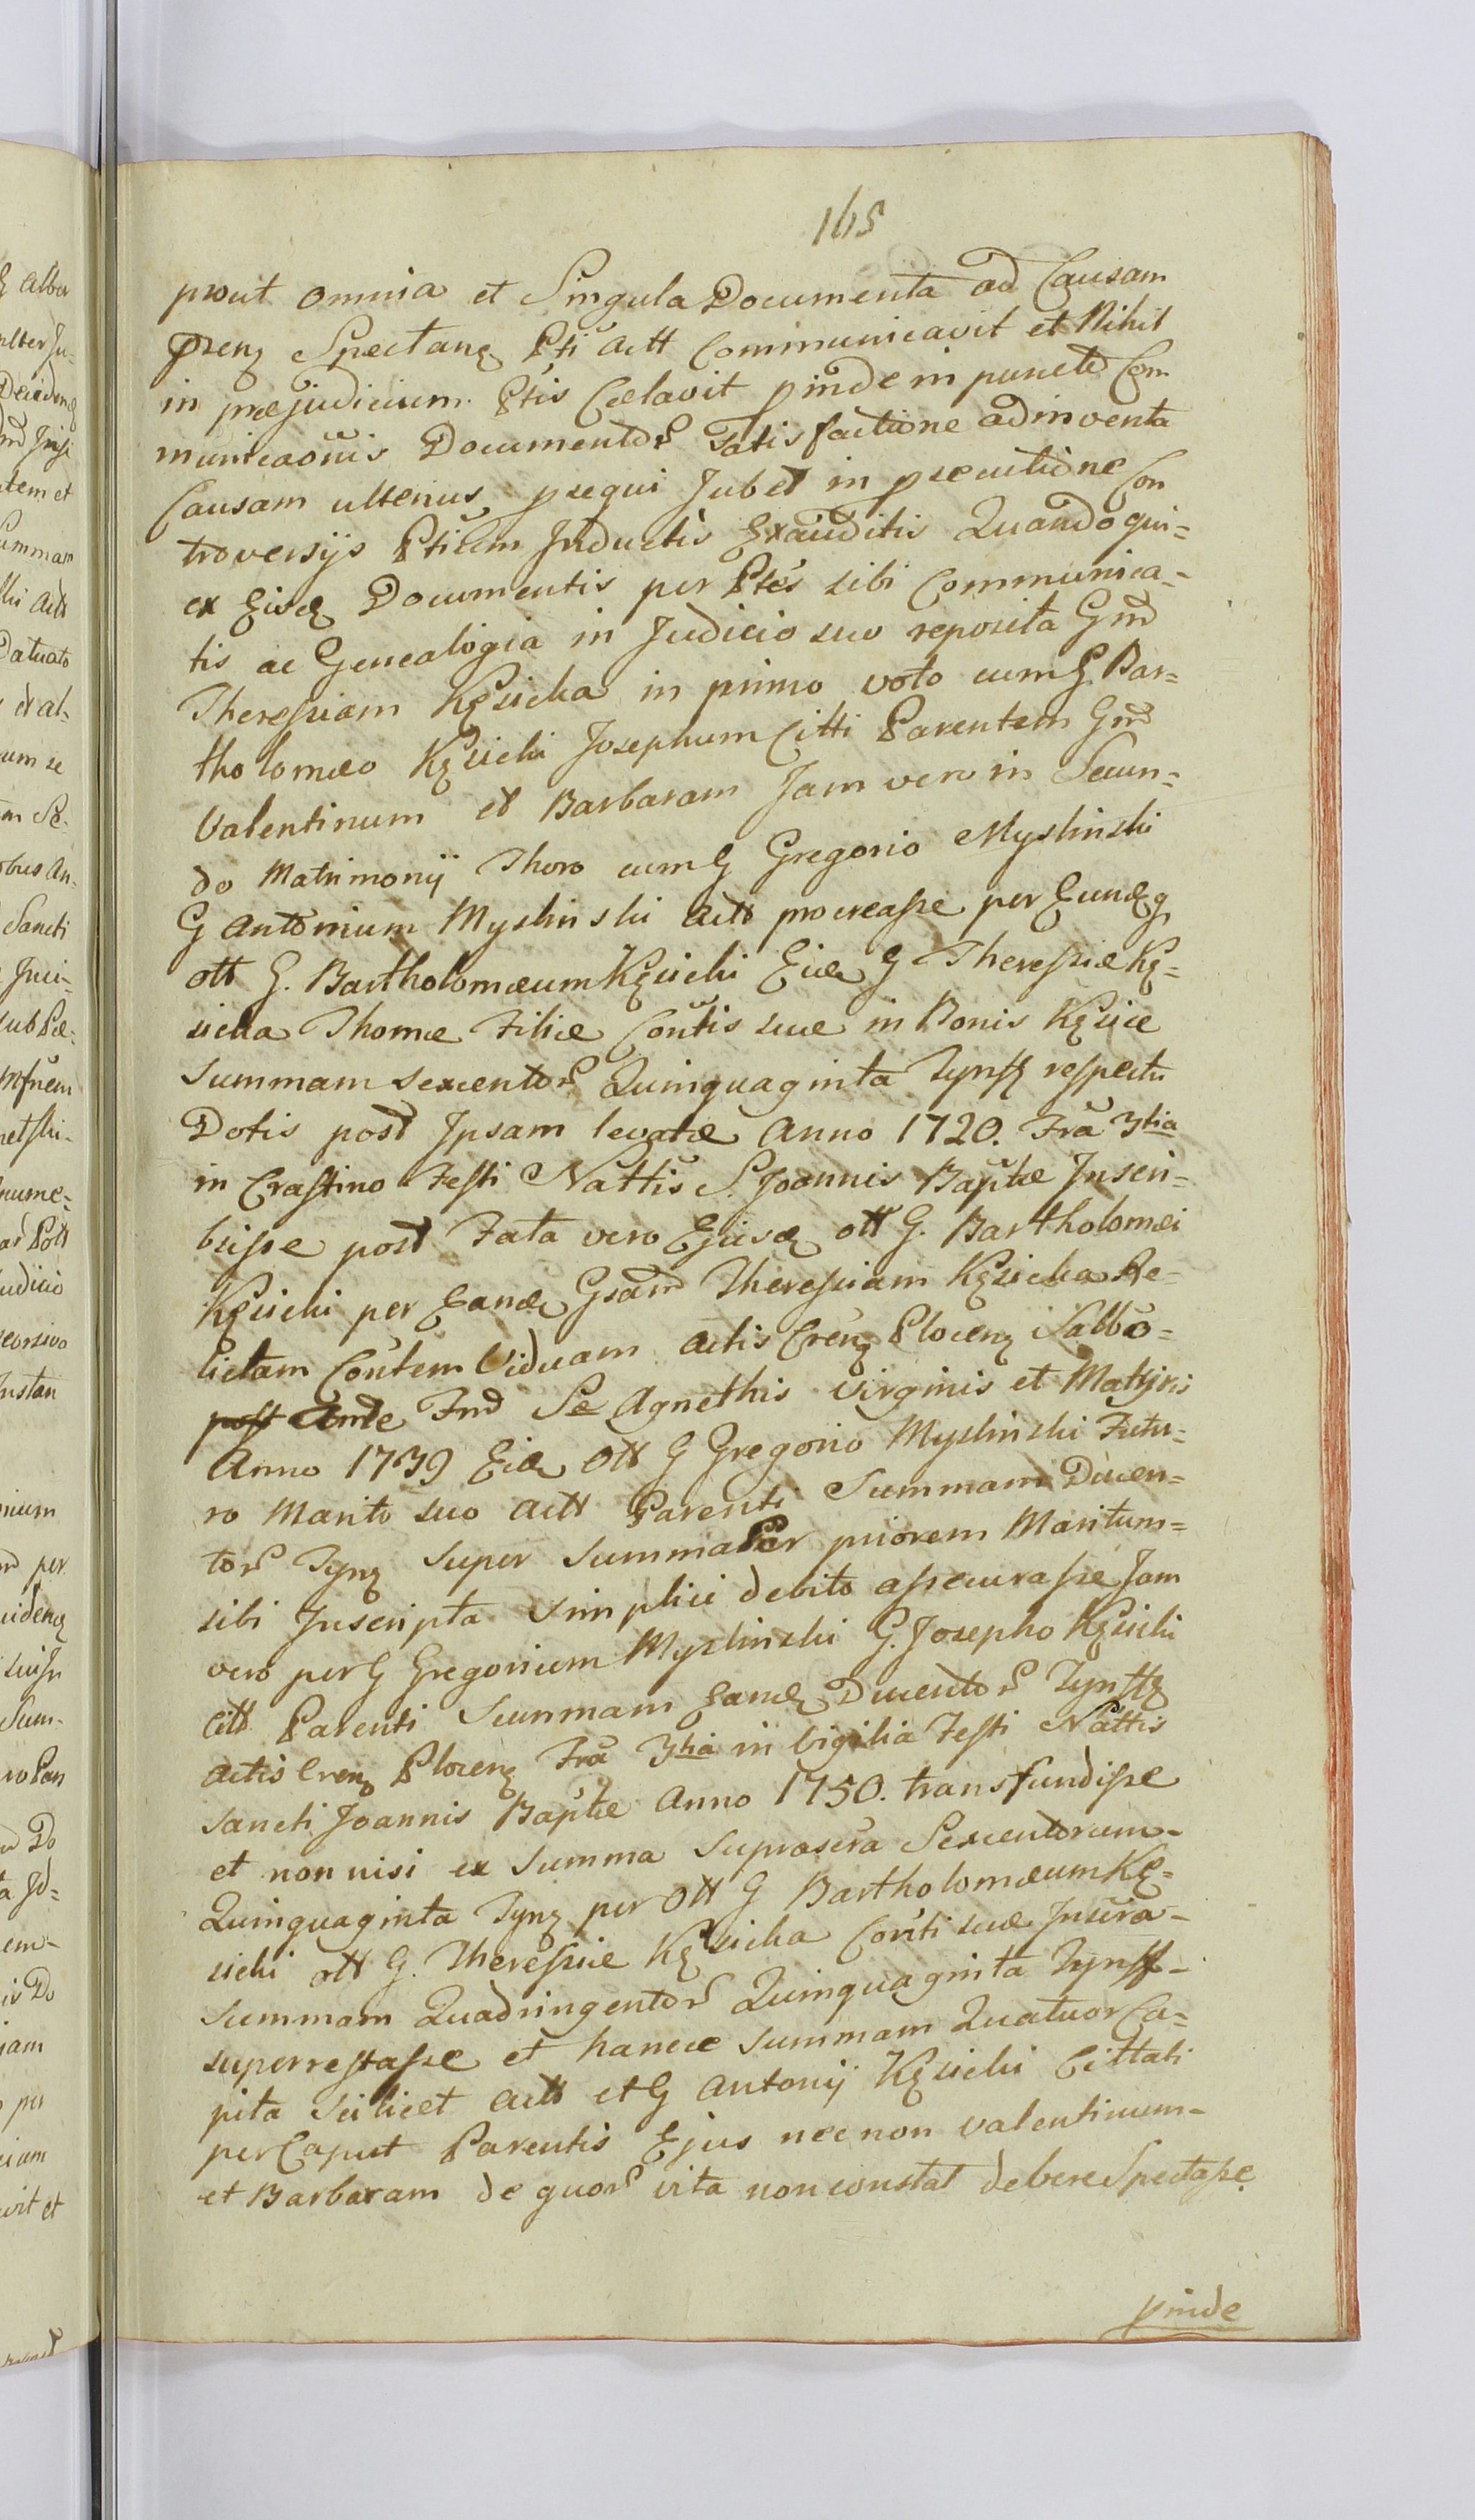 165
prout omnia et Singula Documenta ad Causam
prenz Spectanz Pti Actt Communicavit et Nihil
in præjudicium Ptis Celavit pinde in puncto Com
municaonis Documentor Satisfactione adinventa
Causam ulterius psequi Jubet in psecutione Con
troversijs Ptium Inductis Exauditis Quandoqui=
ex Eisd Documentis per Ptes sibi Communica=
tis ac Genealogia in Judicio suo reposita Gnd
Theressiam Kęsicka in primo voto cum G. Bar=
tholomæo Kęsicki Josephum Citti Parentem Gnd
Valentinum et Barbaram Jam vero in Secun=
do Matrimonij Thoro cum G Gregorio Myslinski
G Antonium Myslinski Actt procreasse per Eundq
ott G. Bartholomæum Kęsicki Eid G Theressiæ Kę=
sicka Thomæ Filiæ Contis suæ in Bonis Kęsice
Summam sexcentor Quinquaginta Tynff respectu
Dotis post Ipsam levatæ Anno 1720. Fra 3tia
in Crastino Festi Nattis S. Joannis Baptæ Inscri=
bsisse post Fata vero Ejusd ott G. Bartholomæi
Kęsicki per Eand Gsam Theressiam Kęsicka Re=
lictam Contem Viduam Actis Crenz Plocenz Sabbo=
post Ante Fnd Sæ Agnethis Virginis et Matyris
Anno 1739 Eid Ott G Gregorio Myslinski Futu=
ro Marito suo Actt Parenti Summam Ducen=
tor Tynz super summa Per priorem Maritum=
sibi Inscripta simplici debito assecurasse Jam
vero per G Gregorium Myslinski G. Josepho Kęsicki
Citt Parenti Summam Eand Ducentor Tynffz
Actis Crenz Plocenz Fra 3tia in Vigilia Festi Nattis
Sancti Joannis Baptæ Anno 1750. transfundisse
et non nisi ex Summa suprascra Sexcentorum-
Quinquaginta Tynz per Ott G Bartholomæum Kę=
sicki ott G. Theressiæ Kęsicka Conti suæ Inscra-
Summam Quadringentor Quinquaginta Tynff-
superrestasse et hancce Summam Quatuor Ca=
pita scilicet Actt et G Antonij Kęsicki Cittati
per Caput Parentis Ejus nec non Valentinum-
et Barbaram de quor vita non constat debere Spectasse
pinde